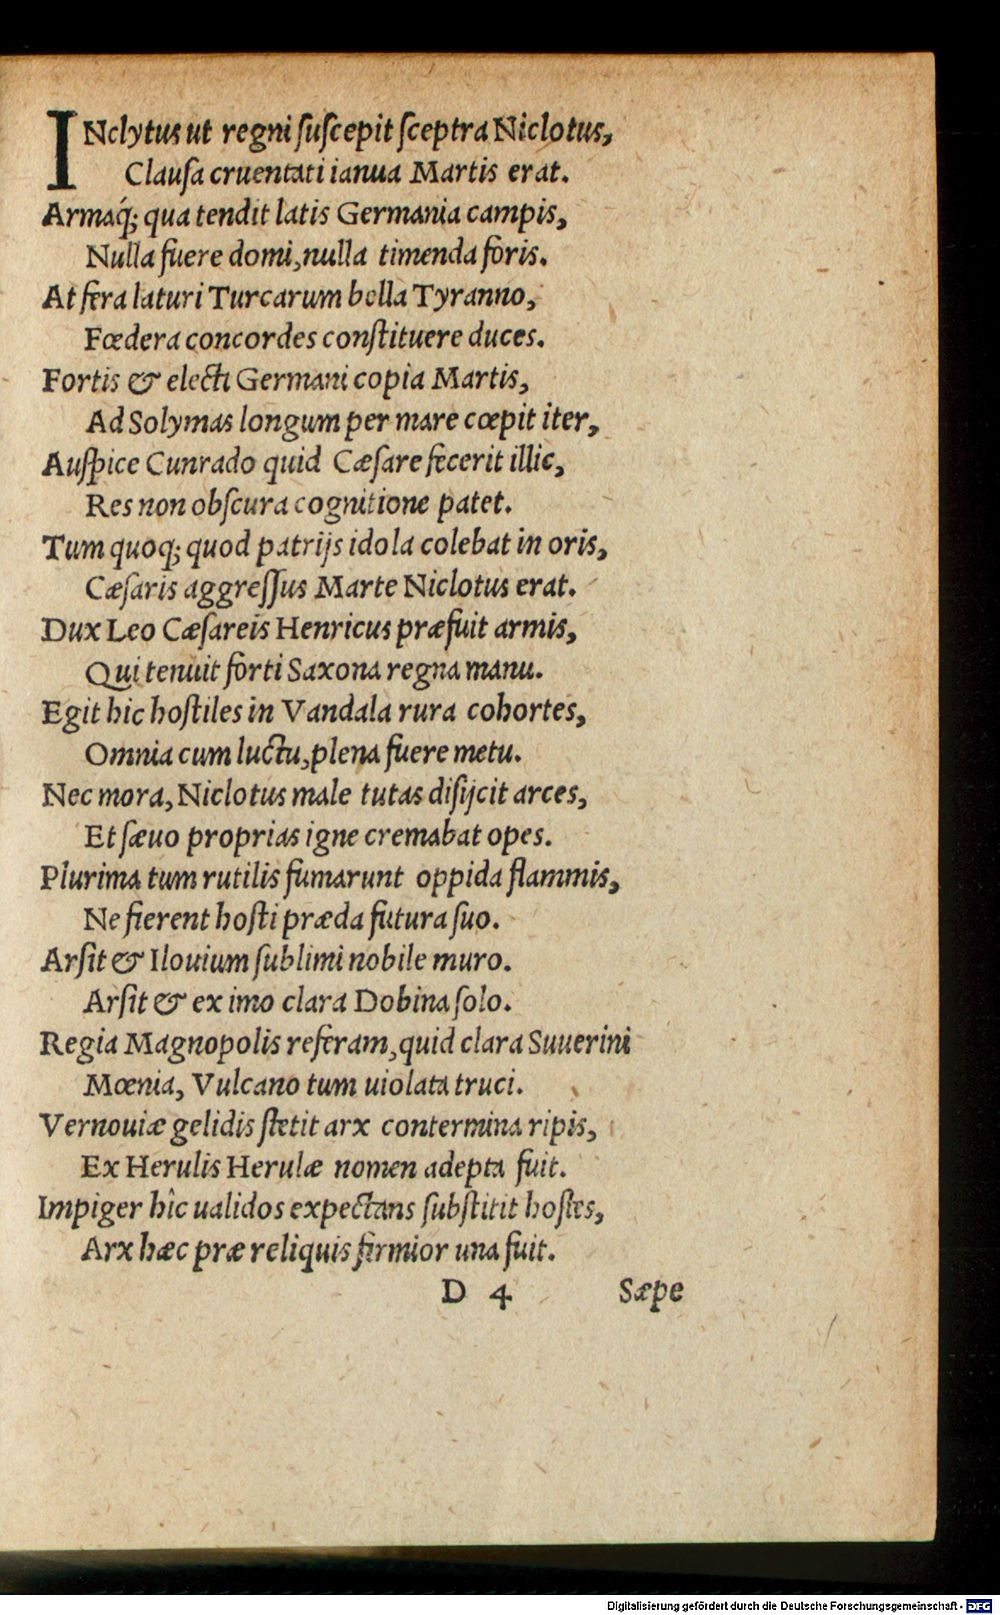 INclytus ut regni ſuſcepit ſceptra Niclotus,
Clauſa cruentati ianua Martis erat.
Armaq́; qua tendit latis Germania campis,
Nulla fuere domi, nulla timenda foris.
At fera laturi Turcarum bella Tyranno,
Fœdera concordes conſtituere duces.
Fortis & electi Germani copia Martis,
Ad Solymas longum per mare cœpit iter,
Auſpice Cunrado quid Cæſare fecerit illic,
Res non obſcura cognitione patet.
Tum quoq; quod patrijs idola colebat in oris,
Cæſaris aggreſſus Marte Niclotus erat.
Dux Leo Cæſareis Henricus præfuit armis,
Qui tenuit forti Saxona regna manu.
Egit hic hoſtiles in Vandala rura cohortes,
Omnia cum luctu, plena fuere metu.
Nec mora, Niclotus male tutas diſijcit arces,
Et ſæuo proprias igne cremabat opes.
Plurima tum rutilis fumarunt oppida flammis,
Ne fierent hoſti præda futura ſuo.
Arſit & Ilouium ſublimi nobile muro.
Arſit & ex imo clara Dobina ſolo.
Regia Magnopolis referam, quid clara Suuerini
Mœnia, Vulcano tum uiolata truci.
Vernouiæ gelidis ſtetit arx contermina ripis,
Ex Herulis Herulæ nomen adepta fuit.
Impiger hîc ualidos expectans ſubſtitit hoſtes,
Arx hæc præ reliquis firmior una fuit.
D 4 Sæpe
Digitalisierung gefördert durch die Deutsche Forschungsgemeinschaft - DFG